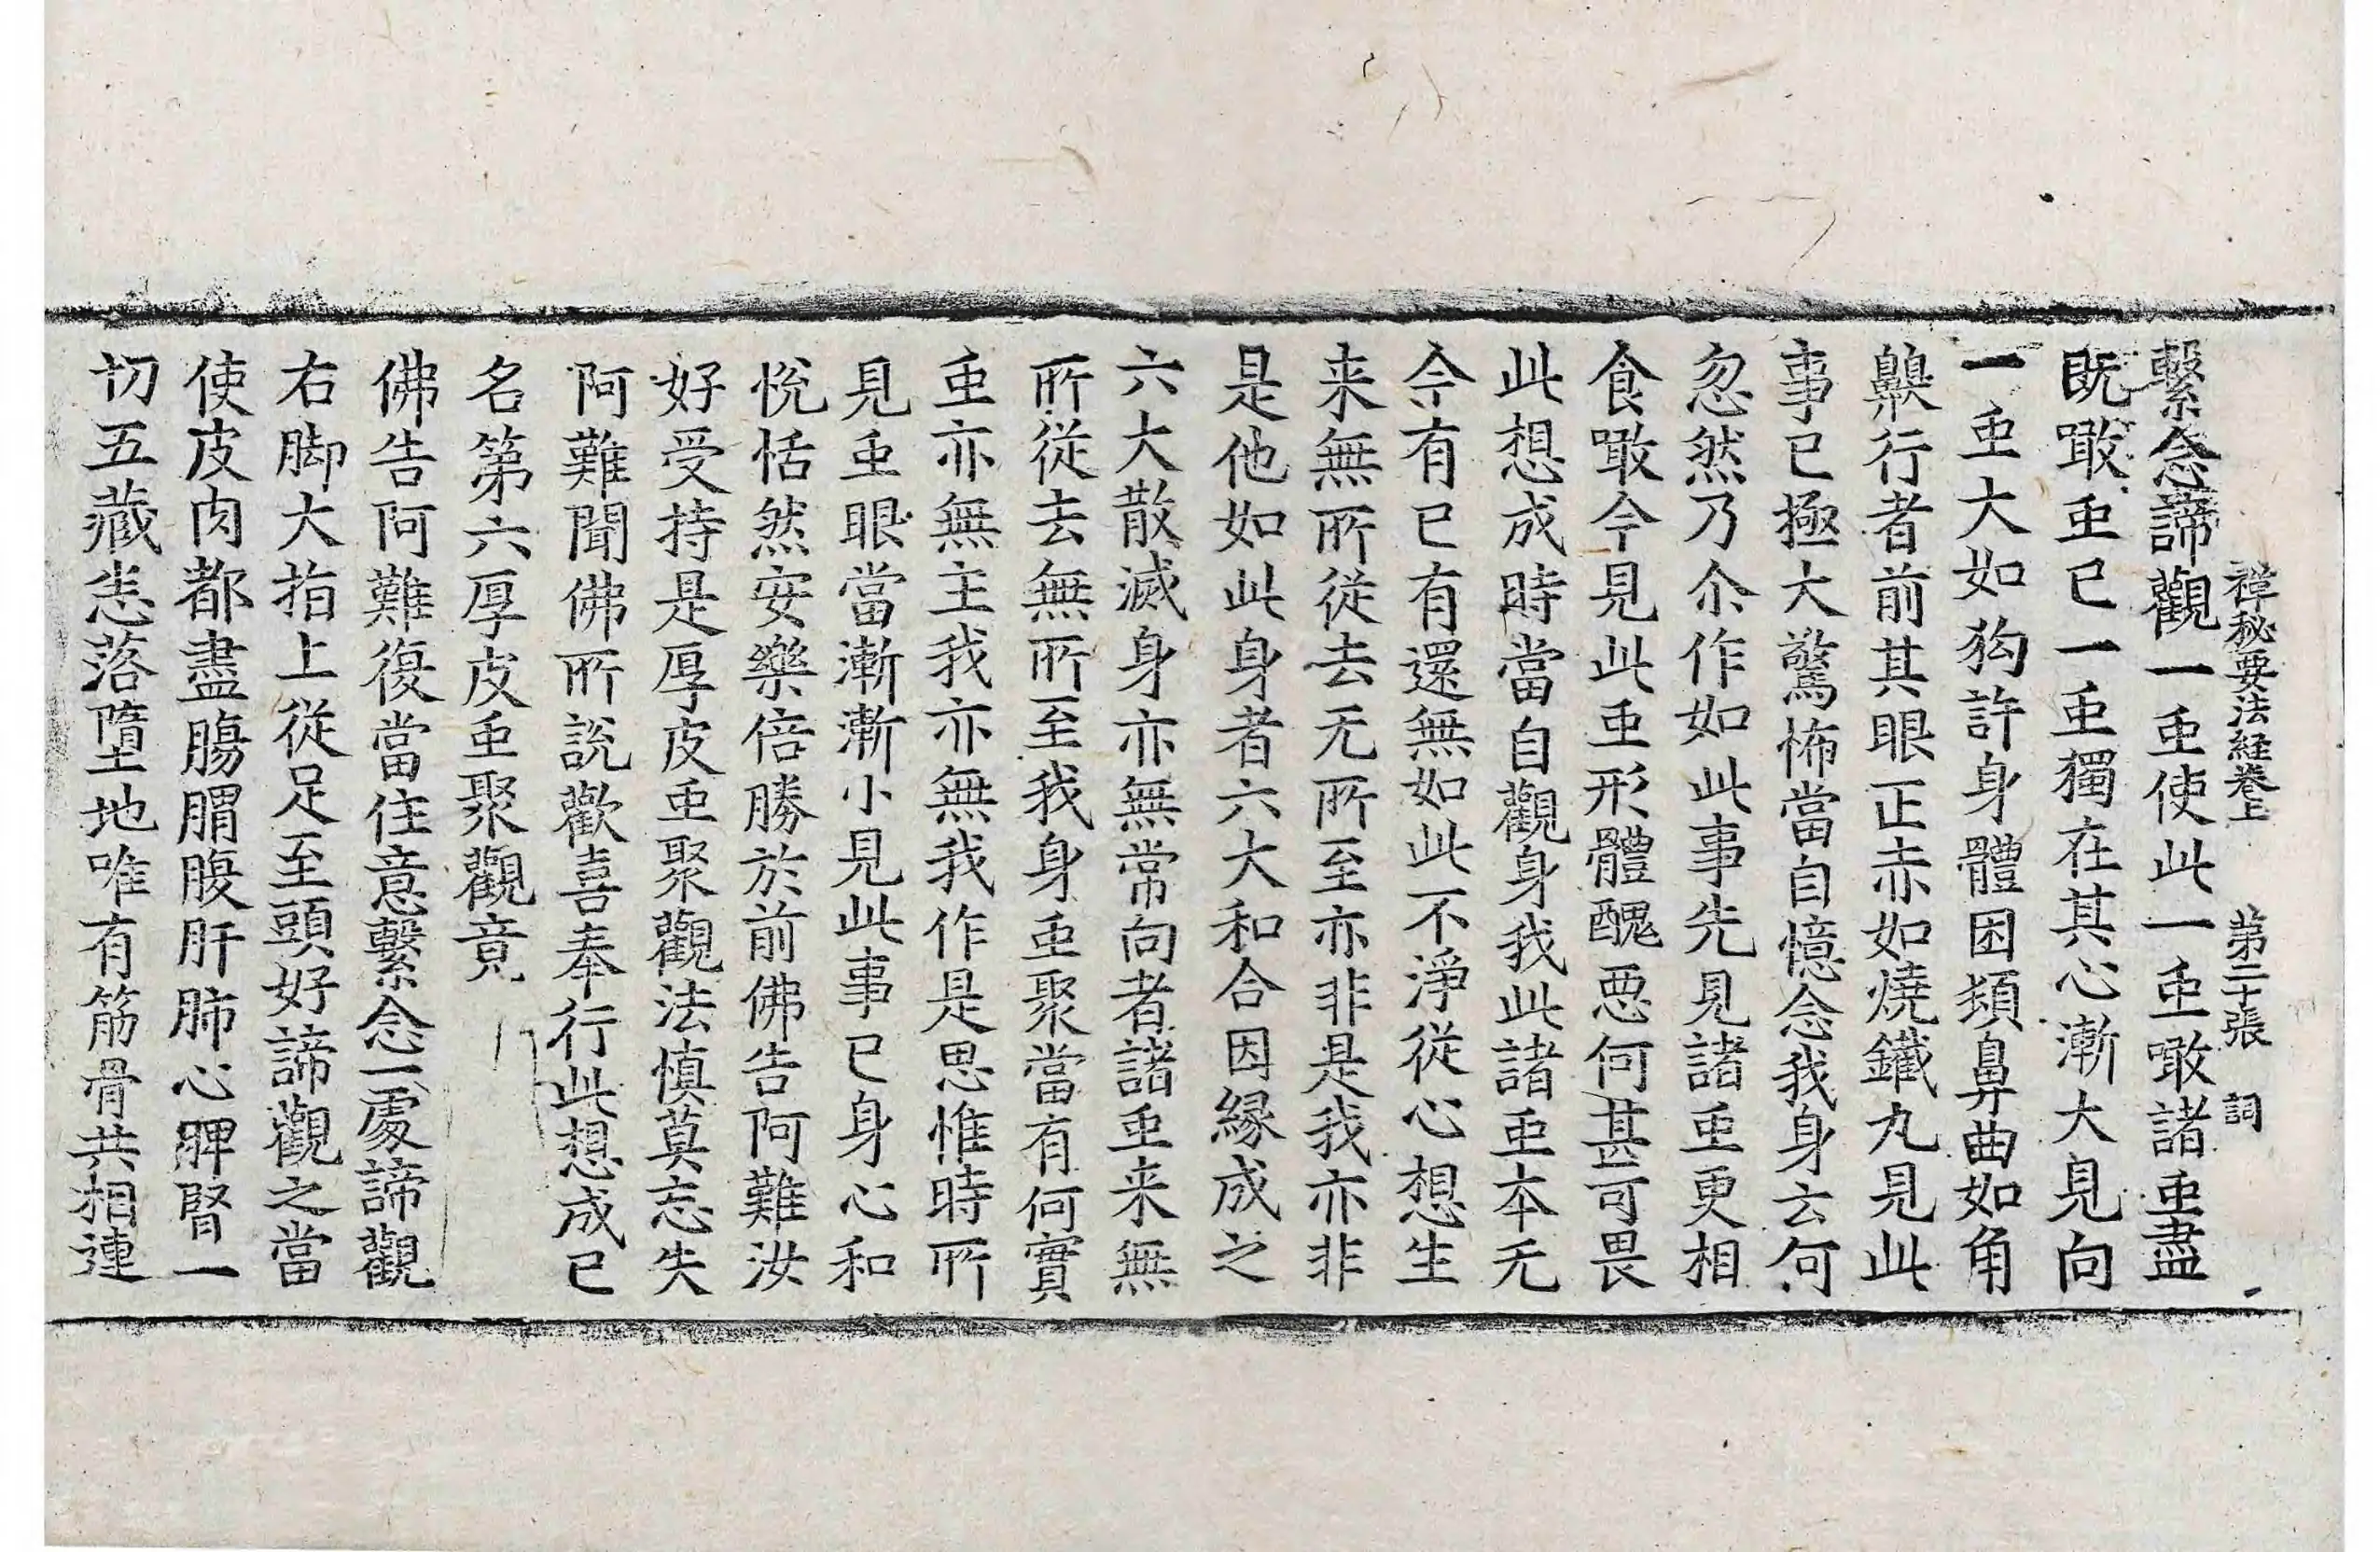 禪秘要法経卷上 第二十張 詞
繫念諦觀一䖝使此一䖝噉諸䖝盡
既噉䖝已一䖝獨在其心漸大見向
一䖝大如狗許身體困頓鼻曲如角
㗜行者前其眼正赤如燒鐵丸見此
事已極大驚怖當自憶念我身云何
忽然乃尒作如此事先見諸䖝更相
食噉今見此䖝形體醜悪何甚可畏
此想成時當自觀身我此諸䖝本无
今有已有還無如此不淨從心想生
来無所従去无所至亦非是我亦非
是他如此身者六大和合因縁成之
六大散滅身亦無常向者諸䖝来無
所從去無所至我身䖝聚當有何實
䖝亦無主我亦無我作是思惟時所
見䖝眼當漸漸小見此事已身心和
悅恬然安樂倍勝於前佛告阿難汝
好受持是厚皮䖝聚觀法慎莫忘失
阿難聞佛所說歡喜奉行此想成已
名第六厚皮䖝聚觀竟
佛告阿難復當住意繫念一處諦觀
右脚大指上從足至頭好諦觀之當
使皮肉都盡腸胃腹肝肺心脾腎一
切五藏恙落墮地唯有筋骨共相連